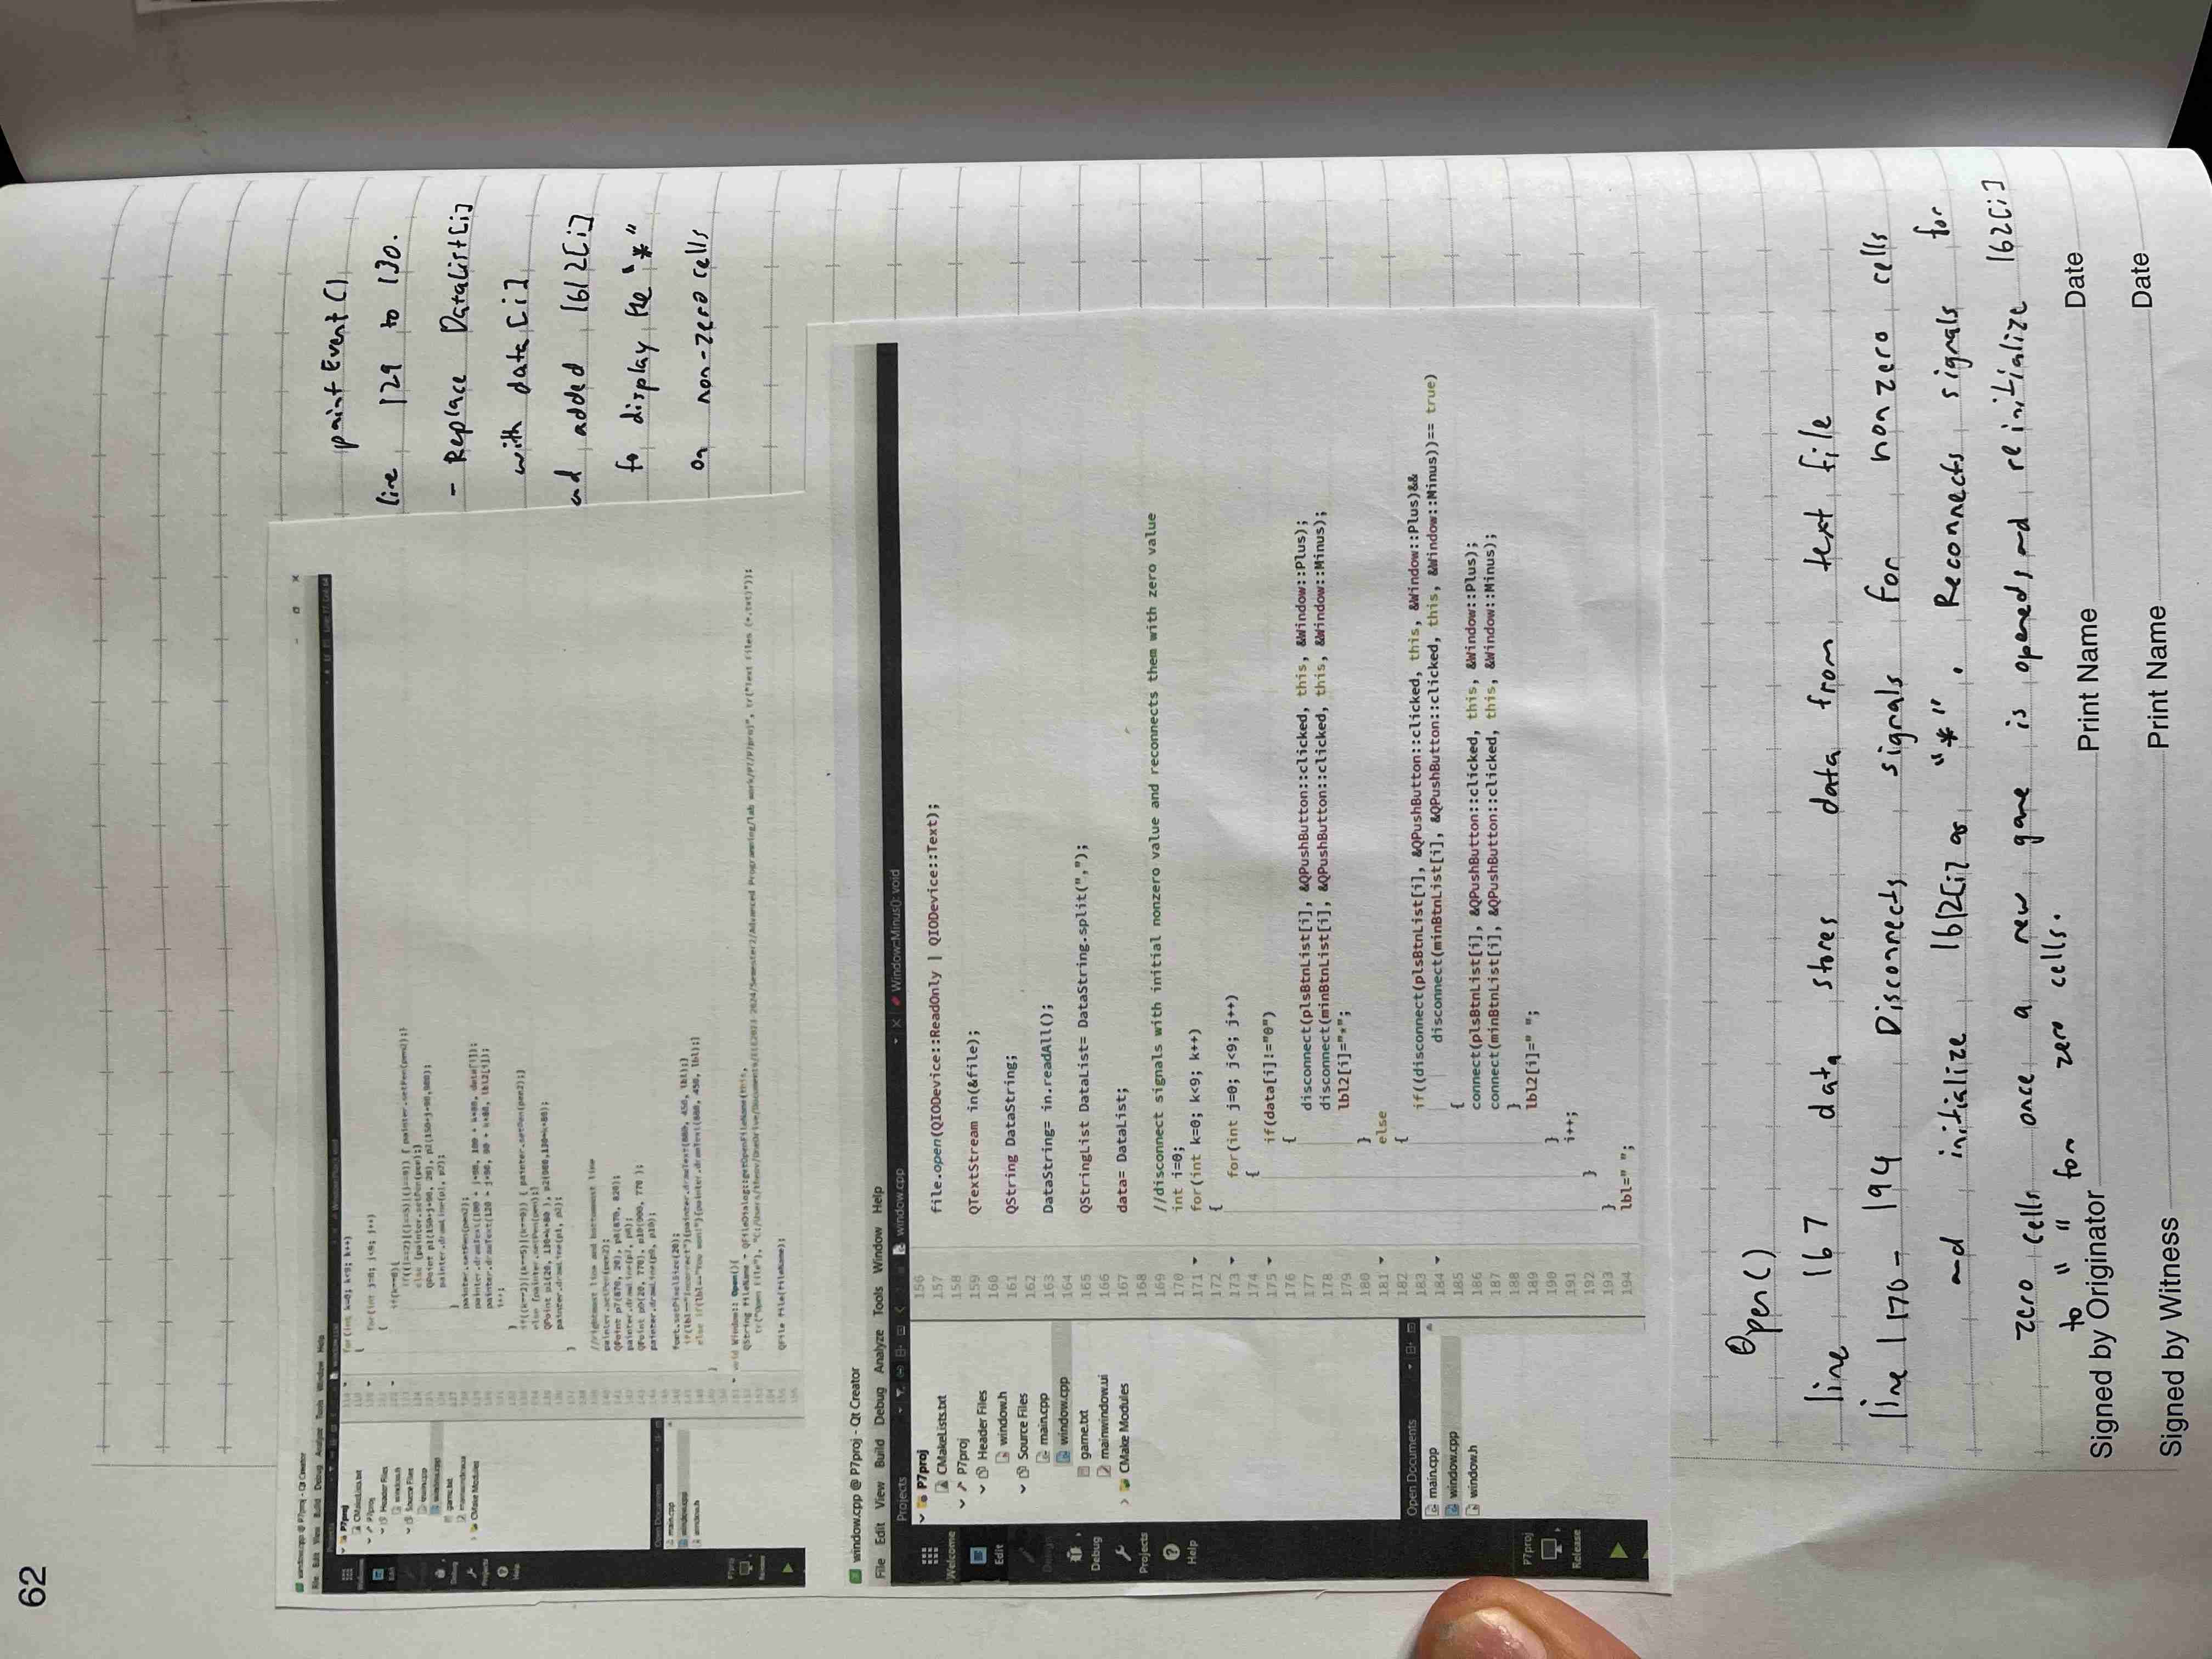 62
window.cpp @ P7proj - Qt Creator
File Edit View Build Debug Analyze Tools Window Help
Projects
window.cpp
P7proj
CMakeLists.txt
P7proj
Header Files
window.h
Source Files
main.cpp
window.cpp
game.txt
mainwindow.ui
CMake Modules
Open Documents
main.cpp
window.cpp
window.h
for(int k=0; k<9; k++)
{
for(int j=0; j<9; j++)
{
if(k==0){
else {painter.setPen(pen);}
painter.drawLine(p1, p2);
}
painter.setPen(pen2);
painter.drawText(100 + j*90, 100 + k*80, data[i]);
painter.drawText(120 + j*90, 90 + k*80, lbl2[i]);
i++;
}
else {painter.setPen(pen);}
painter.drawLine(p1, p2);
}
//rightmost line and bottommost line
painter.setPen(pen2);
QPoint p7(870, 20), p8(870, 820);
painter.drawLine(p7, p8);
QPoint p9(20, 770), p10(900, 770 );
painter.drawLine(p9, p10);
font.setPixelSize(20);
if(lbl=="Incorrect"){painter.drawText(880, 450, lbl);}
else if(lbl=="You won!"){painter.drawText(880, 450, lbl);}
}
void Window:: Open(){
QString fileName = QFileDialog::getOpenFileName(this,
QFile file(fileName);
paintEvent()
line 129 to 130.
- Replace DataList[i]
with data[i]
and added lbl2[i]
to display the "*"
on non-zero cells
window.cpp @ P7proj - Qt Creator
File Edit View Build Debug Analyze Tools Window Help
Projects
window.cpp
Window::Minus(): void
Welcome
Edit
Design
Debug
Projects
Help
P7proj
CMakeLists.txt
P7proj
Header Files
window.h
Source Files
main.cpp
window.cpp
game.txt
mainwindow.ui
CMake Modules
Open Documents
main.cpp
window.cpp
window.h
P7proj
Release
156
157 file.open(QIODevice::ReadOnly | QIODevice::Text);
158
159 QTextStream in(&file);
160
161 QString DataString;
162
163 DataString= in.readAll();
164
165 QStringList DataList= DataString.split(",");
166
167 data= DataList;
168
169 //disconnect signals with initial nonzero value and reconnects them with zero value
170 int i=0;
171 for(int k=0; k<9; k++)
172 {
173 for(int j=0; j<9; j++)
174 {
175 if(data[i]!="0")
176 {
177 disconnect(plsBtnList[i], &QPushButton::clicked, this, &Window::Plus);
178 disconnect(minBtnList[i], &QPushButton::clicked, this, &Window::Minus);
179 lbl2[i]="*";
180 }
181 else
182 {
183 if((disconnect(plsBtnList[i], &QPushButton::clicked, this, &Window::Plus)&&
184 disconnect(minBtnList[i], &QPushButton::clicked, this, &Window::Minus))== true)
185 {
186 connect(plsBtnList[i], &QPushButton::clicked, this, &Window::Plus);
187 connect(minBtnList[i], &QPushButton::clicked, this, &Window::Minus);
188 }
189 lbl2[i]=" ";
190 }
191 i++;
192 }
193 }
194 lbl=" ";
Open()
line 167 data stores data from text file
line 170 - 194 Disconnects signals for nonzero cells
and initialize lbl2[i] as "*". Reconnects signals for
zero cells once a new game is opened, and reinitialize lbl2[i]
to " " for zero cells.
Signed by Originator Print Name Date
Signed by Witness Print Name Date